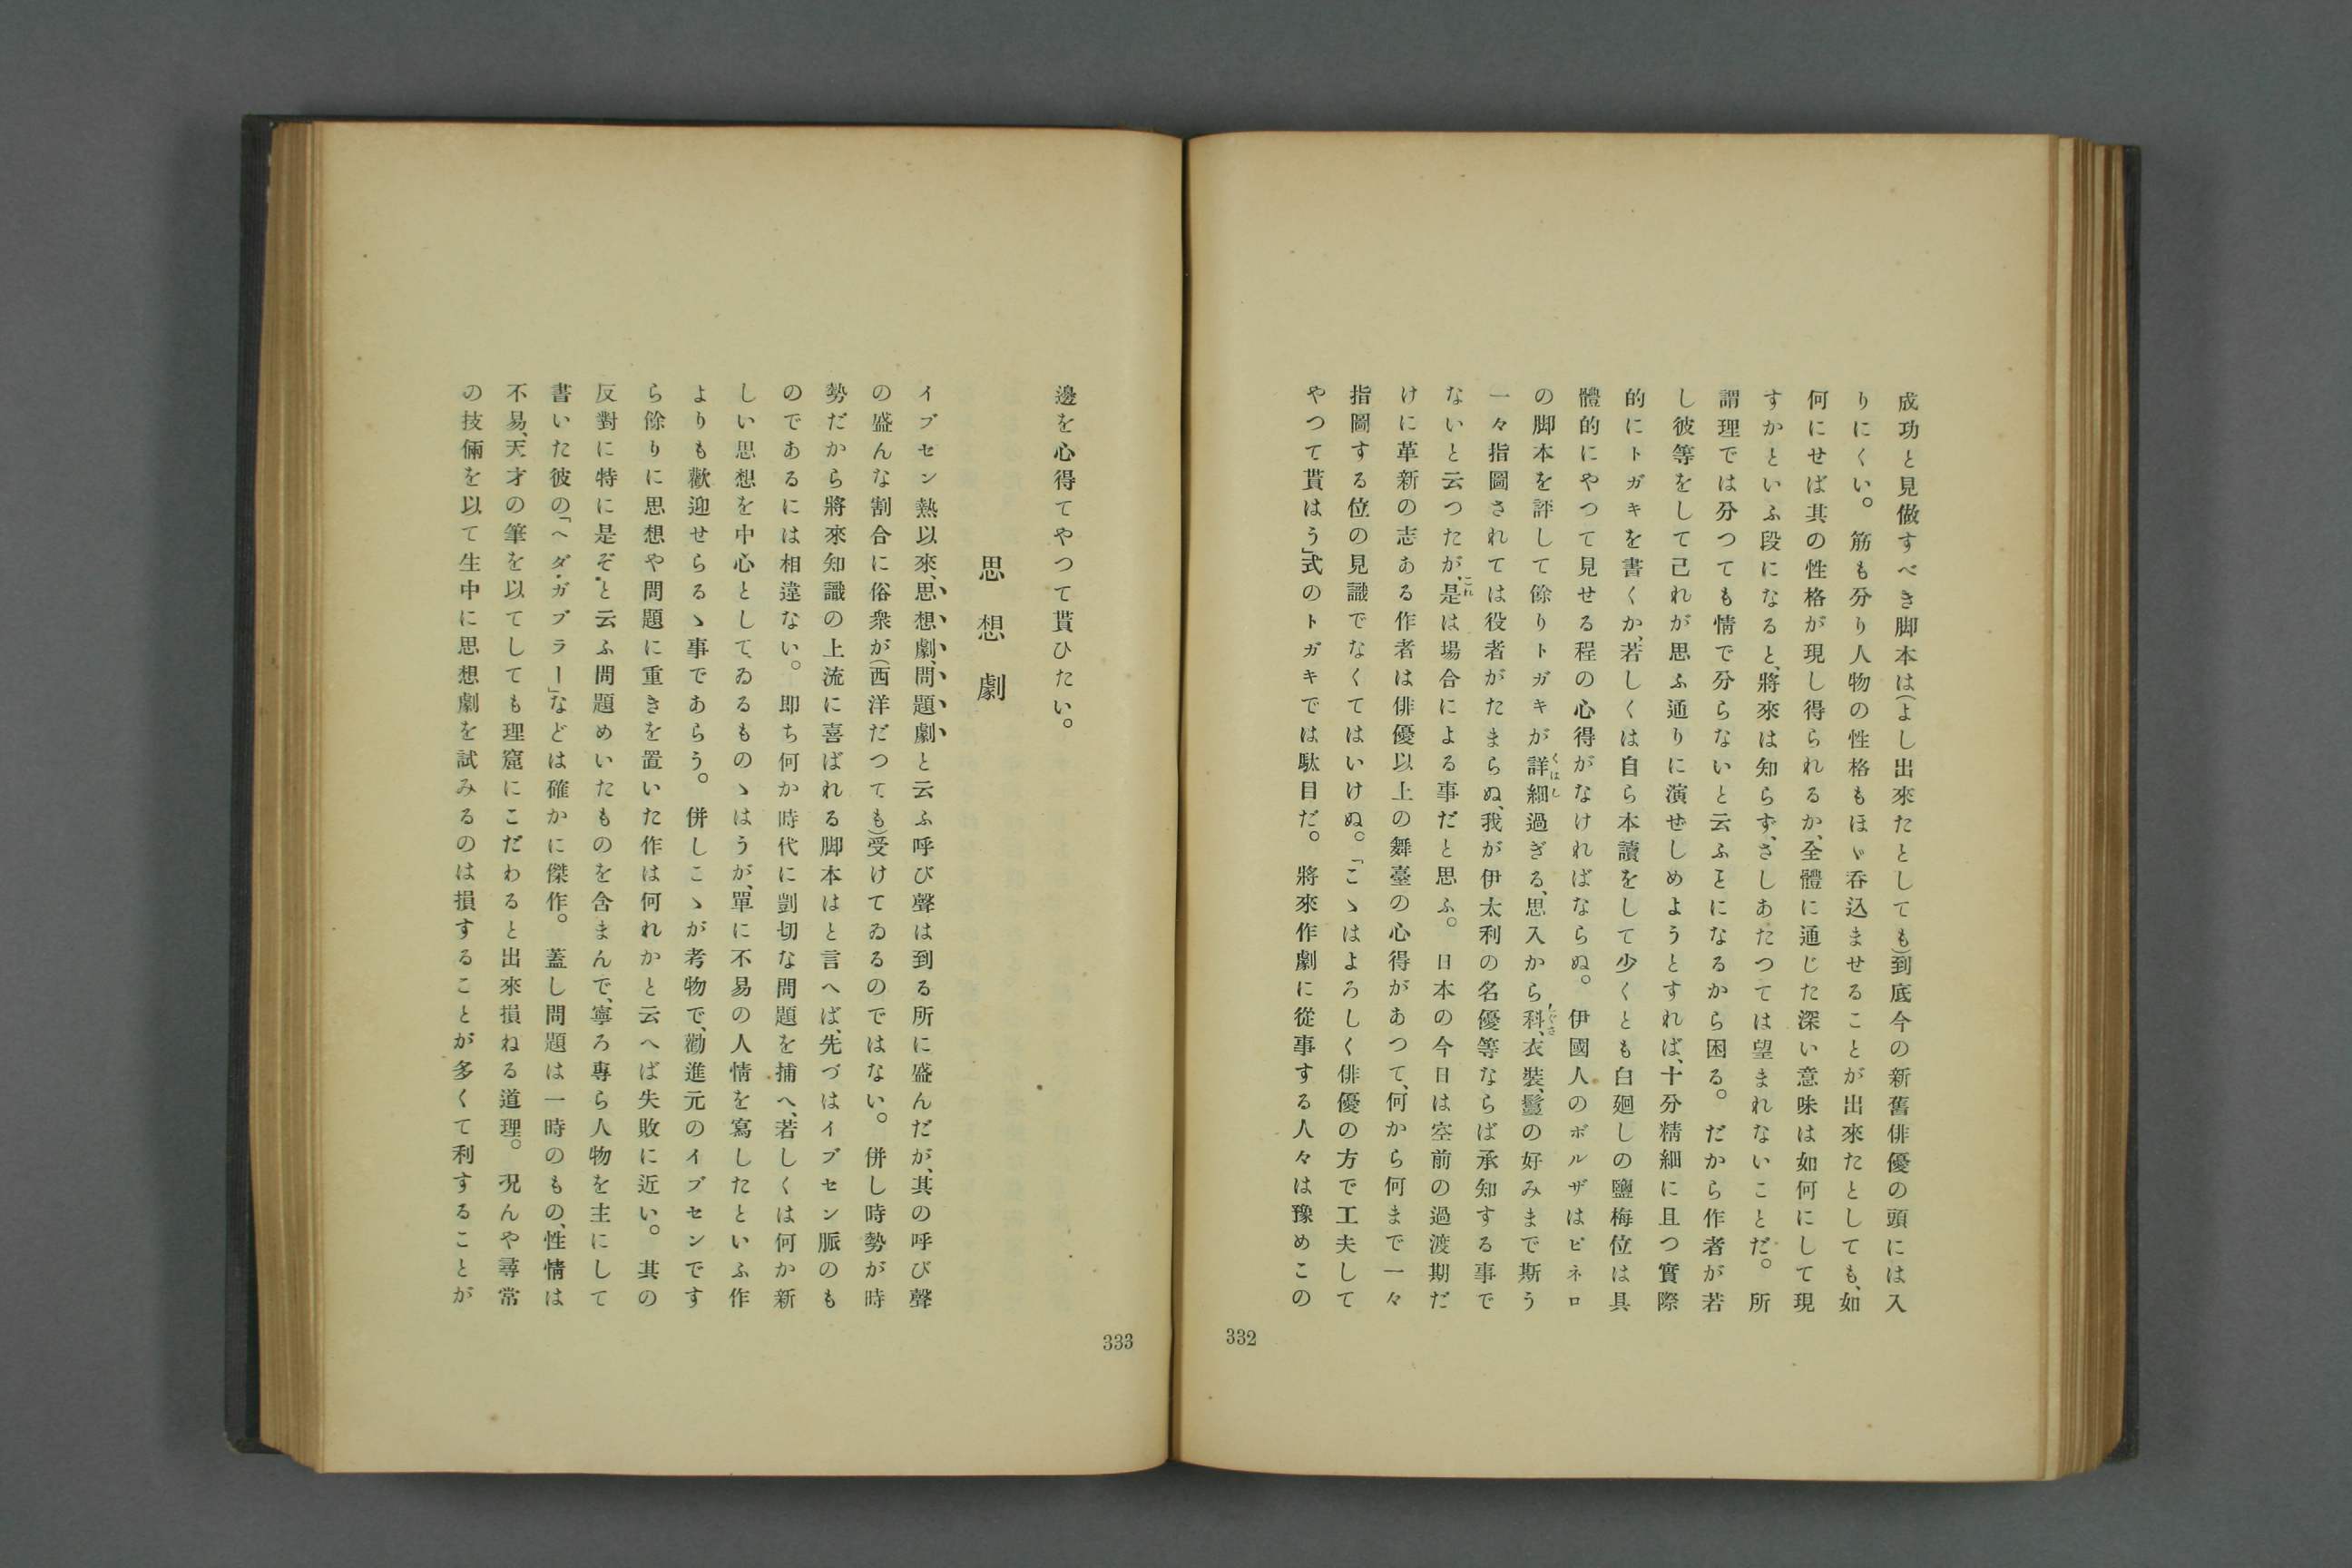 成功と見做すべき脚本は(よし出來たとしても)到底今の新舊俳優の頭には入
りにくい。筋も分り人物の性格もほゞ呑込ませることが出來たとしても、如
何にせば其の性格が現し得られるか、全體に通じた深い意味は如何にして現
すかといふ段になると、將來は知らず、さしあたつては望まれないことだ。所
謂理では分つても情で分らないと云ふことになるから困る。だから作者が若
し彼等をして己れが思ふ通りに演せしめようとすれば、十分精細に且つ實際
的にトガキを書くか、若しくは自ら本讀をして少くとも白廻しの鹽梅位は具
體的にやつて見せる程の心得がなければならぬ。伊國人のボルザはピネロ
の脚本を評して餘りトガキが詳細過ぎる、思入から科、衣裝、鬘の好みまで斯う
一々指圖されては役者がたまらぬ、我が伊太利の名優等ならば承知する事で
ないと云つたが、是は場合による事だと思ふ。日本の今日は空前の過渡期だ
けに革新の志ある作者は俳優以上の舞臺の心得があつて、何から何まで一々
指圖する位の見識でなくてはいけぬ。「こゝはよろしく俳優の方で工夫して
やつて貰はう」式のトガキでは駄目だ。將來作劇に從事する人々は豫めこの
332
邊を心得てやつて貰ひたい。
思想劇
イブセン熱以來、思想劇、問題劇と云ふ呼び聲は到る所に盛んだが、其の呼び聲
の盛んな割合に俗衆が(西洋だつても)受けてゐるのではない。併し時勢が時
勢だから將來知識の上流に喜ばれる脚本はと言へば、先づはイブセン脈のも
のであるには相違ない。即ち何か時代に剴切な問題を捕へ、若しくは何か新
しい思想を中心としてゐるものゝはうが、單に不易の人情を寫したといふ作
よりも歡迎せらるゝ事であらう。併しこゝが考物で、勸進元のイブセンです
ら餘りに思想や問題に重きを置いた作は何れかと云へば失敗に近い。其の
反對に特に是ぞと云ふ問題めいたものを含まんで、寧ろ專ら人物を主にして
書いた彼の「ヘダ・ガブラー」などは確かに傑作。蓋し問題は一時のもの、性情は
不易、天才の筆を以てしても理窟にこだわると出來損ねる道理。况んや尋常
の技倆を以て生中に思想劇を試みるのは損することが多くて利することが
333